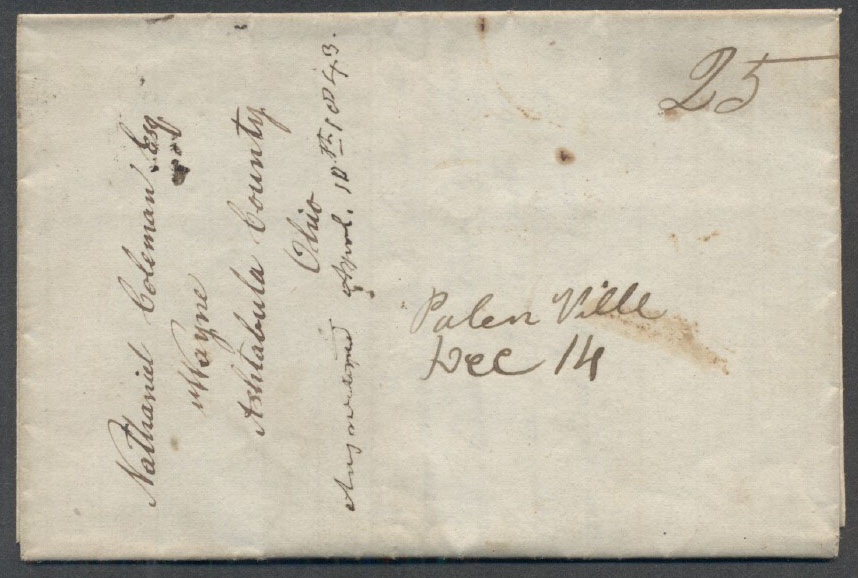 25
Palen Ville
Dec 14
Nathaniel Coleman Esq
Wayne
Ashtabula County
Ohio
Answered Aprl. 18th 1843.